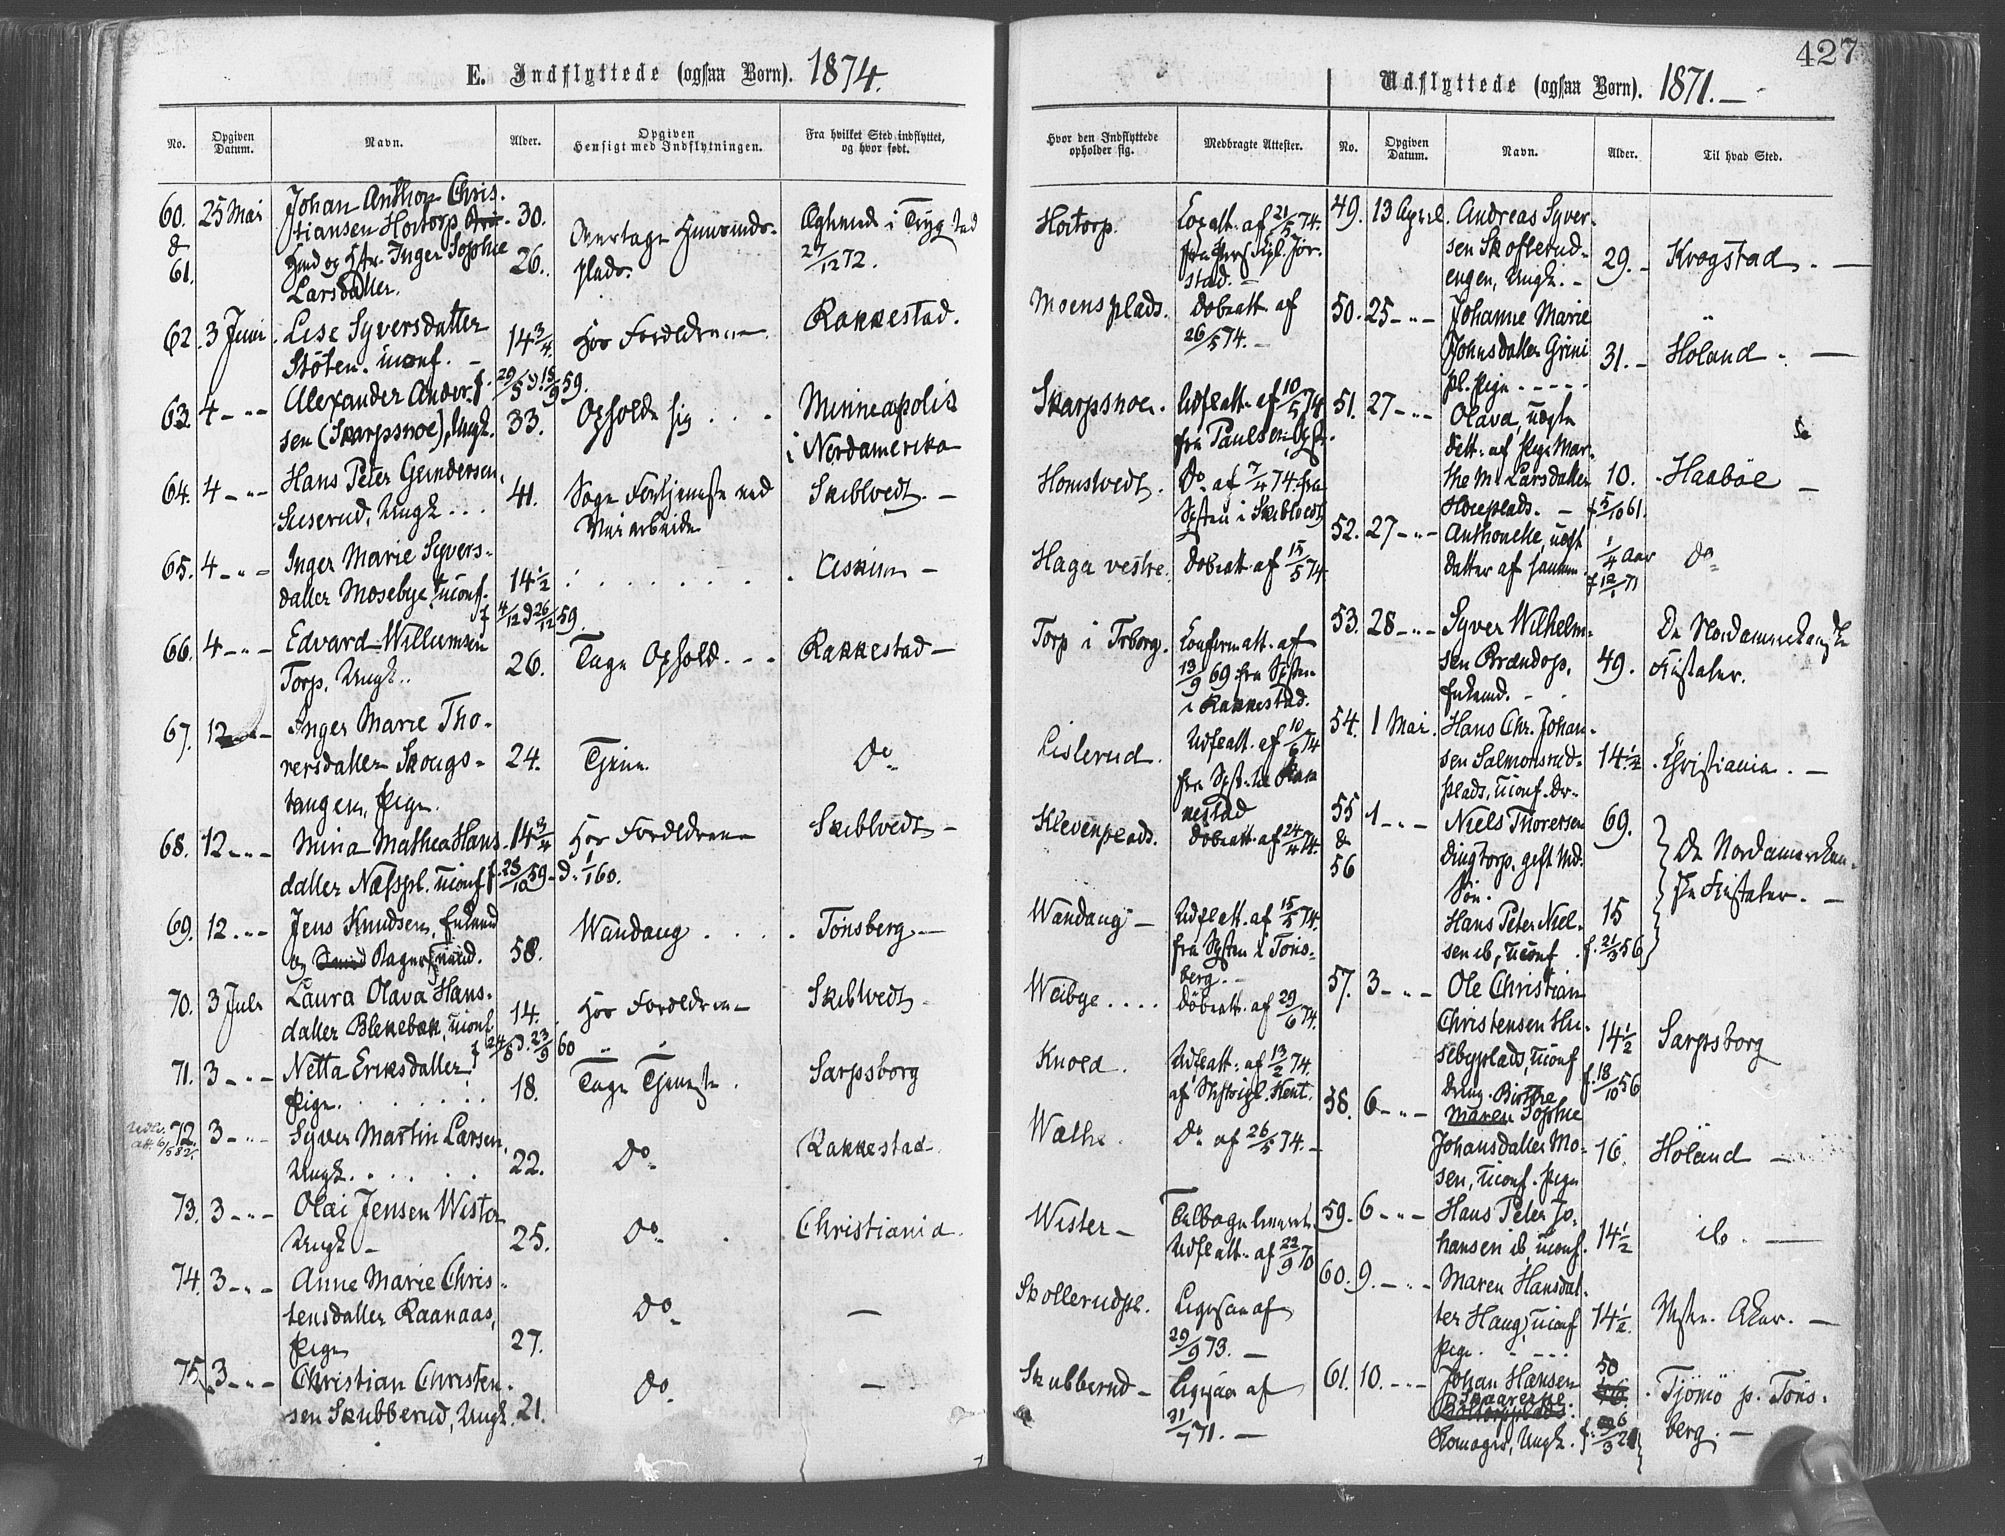 427
E. Indflyttede (ogsaa Børn). 1874.
No.
Opgiven Datum.
Navn.
Alder.
Opgiven Hensigt med Indflytningen.
Fra hvilket Sted indflyttet, og hvor født.
Hvor den Indflyttede opholder sig.
Medbragte Attester.
60. & 61.
25 Mai
Johan Anthon Chris-
tiansen Hoitorp
og Inger Sophie
Larsdatter.
30.
26.
plads.
27/12 72.
Hoitorp.
af 21/5 74.
62. 3 Juni
Lise Syversdatter
Støten. uconf.
14 3/4.
f. 29/5 d. 18/9 59.
Hos Forældrene
Rakkestad.
Moensplads.
Døbeatt. af
26/5 74.
63. 4 - " -
Alexander Ander-
sen (Skarpsnoe), Ungk.
33.
Opholde sig
Minneapolis
i Nordamerika
Skarpsnoe.
Udfl.att. af 10/5 74
fra Paulsen
64. 4 - " -
Hans Peter Gundersen
Suserud, Ungk.
41.
Søge Fortjeneste ved
Veiarbeide
Skiblvedt.
Homstvedt.
Do. af 7/4 74 fra
Spsten i Skiblvedt
65. 4 - " -
Inger Marie Syvers-
datter Mosebye, uconf.
14 1/2
f. 4/12 d. 26/12 59.
Eskim
Haga vestre.
Døbeatt. af 15/5 74
66. 4 - " -
Edvard Willumsen
Torp, Ungk.
26.
Tage Ophold.
Rakkestad
Torp i Trøborg.
Confirm.att. af
13/9 69 fra Spsten
i Rakkestad.
67. 12 - " -
Inger Marie Tho-
rersdatter Skougs-
tangen, Pige.
24.
Tjene
Do
Lislerud.
Udfl.att. af 10/6 74
68. 12 - " -
Mina Mathea Hans-
datter Næsspl. uconf.
14 3/4
f. 25/10 59 - d. 1/1 60.
Hos Forældrene
Skiblvedt
Klevenplads.
Døbeatt. af 24/4 74.
69. 12 - " -
Jens Knudsen, Enkemd
og Bagersvend.
58.
Wandaug
Tønsberg
Wandaug
Udfl.att. af 15/5 74.
fra Spsten i Tøns-
berg.
70. 3 Juli
Laura Olava Hans-
datter Blekebæk, uconf.
14.
f. 24/5 d. 23/9 60
Hos Forældrene
Skiblvedt
Weibye
Døbeatt. af 29/6 74.
71. 3 - " -
Netta Eriksdatter
Pige.
18.
Tage Tjeneste.
Sarpsborg
Knold.
Udfl.att. af 13/2 74.
72. 3 - " -
Syver Martin Larsen,
Ungk.
22.
Do
Rakkestad.
Do af 26/5 74.
73. 3 - " -
Olai Jensen Wister
Ungk
25.
Do
Christiania.
Wister
Tilbageleveret
Udfl.att. af 22/9 70
74. 3 - " -
Anne Marie Chris-
tensdatter Raanaas,
Pige
27.
Do
—
Skollerudpl.
Ligesaa af
29/9 73.
75. 3 - " -
Christian Christen-
sen Skubberud, Ungk.
21.
Do
—
Skubberud
Ligesaa af
31/7 71.
Udflyttede (ogsaa Børn). 1871.
No.
Opgiven Datum.
Navn.
Alder.
Til hvad Sted.
49. 13 April.
Andreas Syver-
sen Skofterud-
engen, Ungk.
29.
Krogstad.
50. 25 - " -
Johanne Marie
Johnsdatter Grini
pl. Pige
31.
Høland.
51. 27 - " -
Olava, uægte
Datt. af Pige Mar-
the M. Larsdatter
10.
f. 5/10 61.
Haabøl
52. 27 - " -
Anthonette, uægt
Datter af samme
1/4 Aar
Do
53. 28 - " -
Syver Wilhelm-
sen Brændop,
Enkemd.
49.
De Nordamerikanske
Fristater.
54. 1 Mai.
Hans Chr. Johan-
sen Salmonsrud-
plads, uconf. Dr.
14 1/2
Christiania.
55 & 56
1 - " -
Niels Thoresen
Dingtorp, gift Md.
Søn.
Hans Peter Niel-
sen ib, uconf.
69.
15
f. 21/3 56
De Nordamerikan-
ske Fristater.
57. 3 - " -
Ole Christian
Christensen Hu-
sebyplads, uconf
Dreng.
14 1/2
f. 18/10 56
Sarpsborg
58. 6 - " -
Maren Sophie
Johansdatter Mo-
sen, uconf. Pige
16.
Høland
59. 6 - " -
Hans Peter Jo-
hansen ib uconf.
14 1/2
ib.
60. 9. - " -
Maren Hansdat-
ter Haug, uconf
Pige.
14 1/2.
Vestre Aker.
61. 10. - " -
Johan Hansen
Romager, Ungk.
50
Tjømø p. Tøns-
berg.